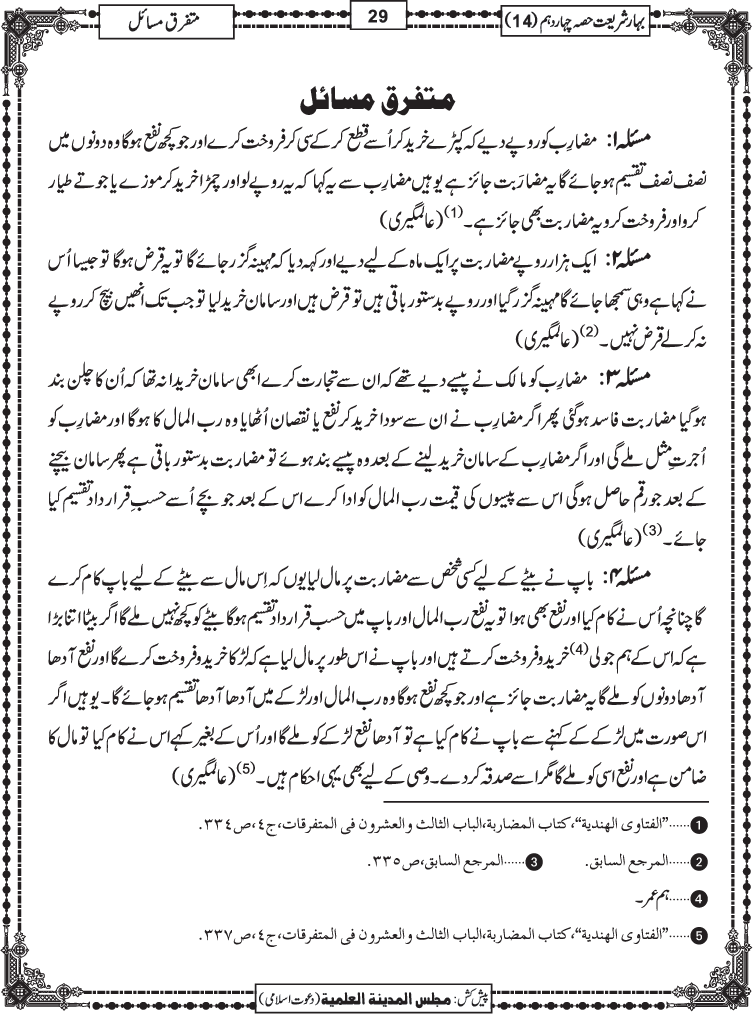 بہارِ شریعت حصہ چہاردہم (14)
29
متفرق مسائل
متفرق مسائل
مسئلہ۱: مضارِب کو روپے دیے کہ کپڑے خرید کر اُسے قطع کر کے سی کر فروخت کرے اور جو کچھ نفع ہوگا وہ دونوں میں
نصف نصف تقسیم ہو جائے گا یہ مضارَبت جائز ہے یوہیں مضارِب سے یہ کہا کہ یہ روپے لو اور چمڑا خرید کر موزے یا جوتے طیار
کرو اور فروخت کرو یہ مضاربت بھی جائز ہے۔(1) (عالمگیری)
مسئلہ۲: ایک ہزار روپے مضاربت پر ایک ماہ کے لیے دیے اور کہہ دیا کہ مہینہ گزر جائے گا تو یہ قرض ہوگا تو جیسا اُس
نے کہا ہے وہی سمجھا جائے گا مہینہ گزر گیا اور روپے بدستور باقی ہیں تو قرض ہیں اور سامان خرید لیا تو جب تک انھیں بیچ کر روپے
نہ کرلے قرض نہیں۔(2) (عالمگیری)
مسئلہ۳: مضارِب کو مالک نے پیسے دیے تھے کہ ان سے تجارت کرے ابھی سامان خریدا نہ تھا کہ اُن کا چلن بند
ہوگیا مضاربت فاسد ہوگئی پھر اگر مضارِب نے ان سے سودا خرید کر نفع یا نقصان اُٹھایا وہ رب المال کا ہوگا اور مضارِب کو
اُجرتِ مثل ملے گی اور اگر مضارِب کے سامان خرید لینے کے بعد وہ پیسے بند ہوئے تو مضاربت بدستور باقی ہے پھر سامان بیچنے
کے بعد جو رقم حاصل ہوگی اس سے پیسوں کی قیمت رب المال کو ادا کرے اس کے بعد جو بچے اُسے حسبِ قرارداد تقسیم کیا
جائے۔(3) (عالمگیری)
مسئلہ۴: باپ نے بیٹے کے لیے کسی شخص سے مضاربت پر مال لیا یوں کہ اِس مال سے بیٹے کے لیے باپ کام کرے
گا چنانچہ اُس نے کام کیا اور نفع بھی ہوا تو یہ نفع رب المال اور باپ میں حسب قرارداد تقسیم ہوگا بیٹے کو کچھ نہیں ملے گا اگر بیٹا اتنا بڑا
ہے کہ اس کے ہم جولی(4) خرید و فروخت کرتے ہیں اور باپ نے اس طور پر مال لیا ہے کہ لڑکا خرید و فروخت کرے گا اور نفع آدھا
آدھا دونوں کو ملے گا یہ مضاربت جائز ہے اور جو کچھ نفع ہوگا وہ رب المال اور لڑکے میں آدھا آدھا تقسیم ہوجائے گا۔ یوہیں اگر
اس صورت میں لڑکے کے کہنے سے باپ نے کام کیا ہے تو آدھا نفع لڑکے کو ملے گا اور اُس کے بغیر کہے اس نے کام کیا تو مال کا
ضامن ہے اور نفع اسی کو ملے گا مگر اسے صدقہ کر دے۔ وصی کے لیے بھی یہی احکام ہیں۔(5) (عالمگیری)
1......"الفتاوی الھندیة"، کتاب المضاربة،الباب الثالث والعشرون فی المتفرقات،ج٤،ص٣٣٤.
2......المرجع السابق. 3......المرجع السابق،ص٣٣٥.
4......ہم عمر۔
5......"الفتاوی الھندیة"، کتاب المضاربة،الباب الثالث والعشرون فی المتفرقات،ج٤،ص٣٣٧.
پیش کش: مجلس المدینة العلمیة (دعوت اسلامی)